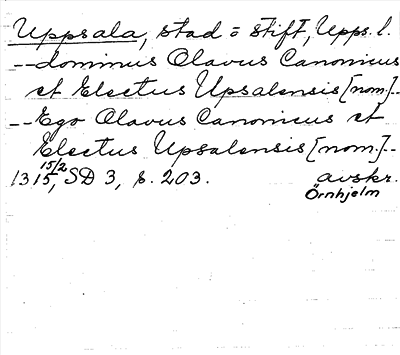 Uppsala, stad o stift, Upps. l.
-- dominus Olavus Canonicus
et Electus Upsalensis [nom.]--
-- Ego Olavus Canonicus et
Electus Upsalensis [nom.]--
1315 15/2, SD 3, s. 203. avskr.
Örnhjelm